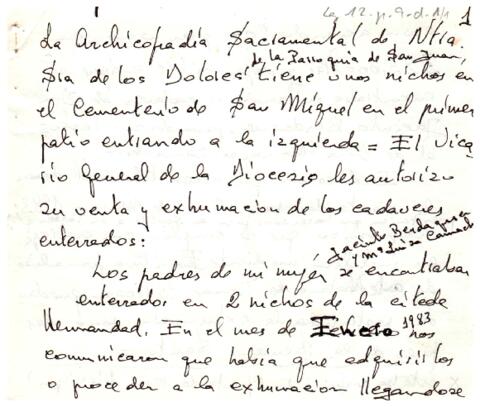 Lg 12. p. 9-d. 1/1
1
La Archicofradía Sacramental de Ntra.
de la Parroquia de San Juan,
Sra de los Dolores tiene unos nichos en
el Cementerio de San Miguel en el primer
patio entrando a la izquierda = El Vica
rio General de la Diocesis les autorizo
su venta y exhumacion de los cadaveres
enterrados:
Jacinto
y Mª Luisa
Los padres de mi mujer se encontraban
enterrados en 2 nichos de la citada
Hermandad. En el mes de Enero 1983 nos
comunicaron que había que adquirirlos
o proceder a la exhumacion llegandose